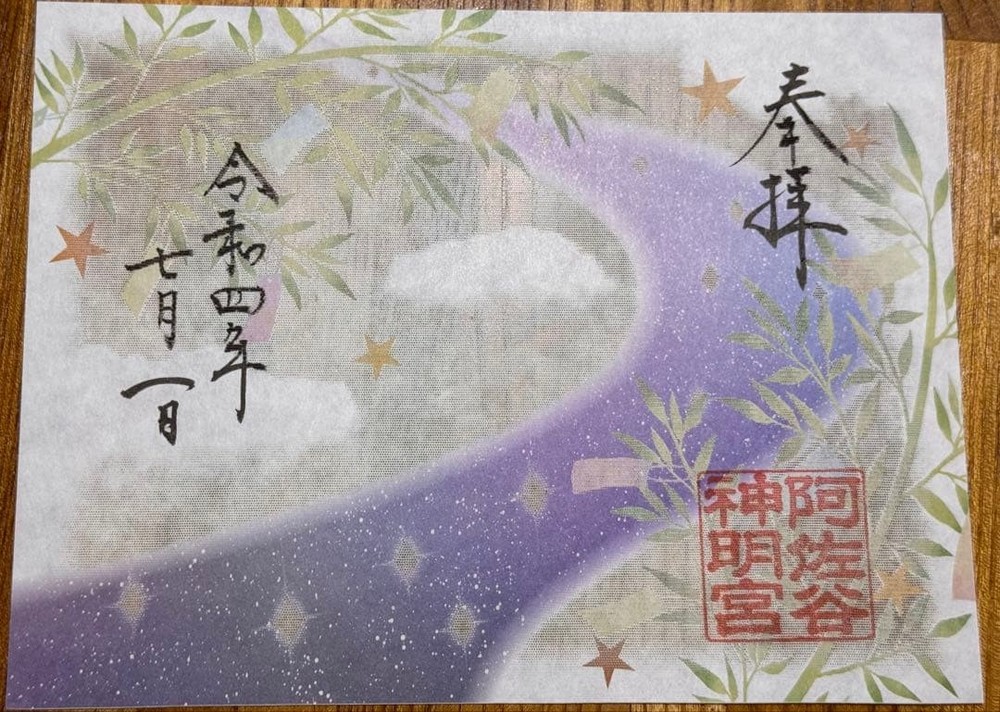 奉拝
阿佐谷
神明宮
令和四年
七月一日